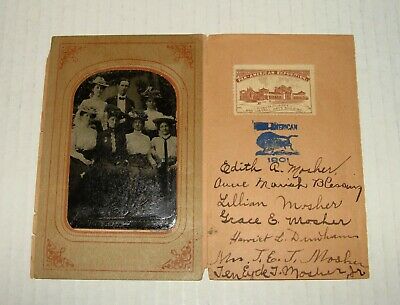 PAN-AMERICAN EXPOSITION.
AMERICAN
1901
Edith A. Mosher
Anne Mariah Blessing
Lillian Mosher
Grace E. Mosher
Harriet L.
Mrs. J. E. T. Mosher
Ten Eyck T. Mosher, Jr